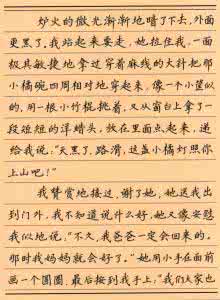 炉火的微光渐渐地暗了下去,外面
更黑了,我站起来要走,她拉住我,一面
极其敏捷地拿过穿着麻线的大针,把那
小橘碗四周相对地穿起来,像一个小筐似
的,用一根小竹棍挑着,又从窗台上拿了一
段短短的洋蜡头,放在里面点起来,递
给我说:"天黑了,路滑,这盏小橘灯照你
上山吧!"
我赞赏地接过,谢了她,她送我出
到门外,我不知道说什么好,她又像安慰
我似地说:"不久,我爸爸一定会回来的。
那时我妈妈就会好了。"她用小手在面前
画一个圆圈,最后按到我手上:"我们大家也